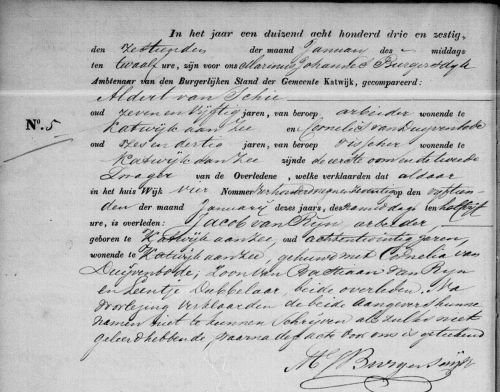 In het jaar een duizend acht honderd drie en zestig,
den zestienden der maand Januari des middags
ten twaalf ure, zijn voor ons Marinus Johannes Burgersdijk
Ambtenaar van den Burgerlijken Stand der Gemeente Katwijk, gecompareerd:
Aldert van Schie
oud zeven en vijftig jaren, van beroep arbeider wonende te
No. 5
Katwijk aan Zee en Cornelis van Duyvenbode
oud zes en dertig jaren, van beroep visscher wonende te
Katwijk aan Zee zijnde de eerste oom en de tweede
Zwager van de Overledene, welke verklaarden dat aldaar
in het huis Wijk vier Nommer op den vijftien-
den der maand Januarij dezes jaars, des namiddags ten half vijf
ure, is overleden: Jacob van Rijn, arbeider,
geboren te Katwijk aan Zee, oud achtentwintig jaren,
wonende te Katwijk aan Zee, gehuwd met Cornelia van
Duijvenbode, Zoon van Bastiaan van Rijn
en Leentje Dubbelaar, beide overleden. Na
voorlezing verklaarden de beide aangevers hunne
namen niet te kunnen schrijven als zulks niet
geleerd hebbende, waarna deze acte door ons is geteekend
M J Burgersdijk